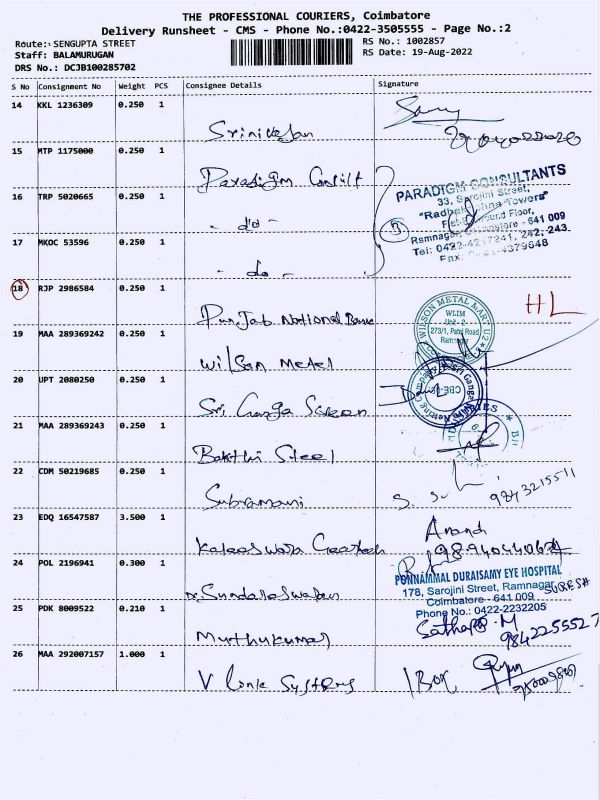 THE PROFESSIONAL COURIERS, Coimbatore
Delivery Runsheet - CMS - Phone No.:0422-3505555 - Page No.:2
Route: SENGUPTA STREET
Staff: BALAMURUGAN
DRS No.: DCJB100285702
RS No.: 1002857
RS Date: 19-Aug-2022
S No Consignment No Weight PCS Consignee Details Signature
14 KKL 1236309 0.250 1
Srinivasan
15 MTP 1175000 0.250 1
Paradigm Consilt
16 TRP 5020665 0.250 1
- do -
17 MKOC 53596 0.250 1
- do -
PARADIGM CONSULTANTS
33, Sarojini Street,
"Radhakrishna Towers"
Ramnagar, Coimbatore - 641 009
Tel: 0422-4217241, 242, 243.
Fax: 0422-4379648
18 RJP 2986584 0.250 1
Punjab National Bank
HL
WILSON METAL & ART U2
WLIM
Unit - 2
273/1, Patel Road
Ramnagar
19 MAA 289369242 0.250 1
Wilson Metel
20 UPT 2080250 0.250 1
Sri Ganga Screen
21 MAA 289369243 0.250 1
Bakthi Steel
22 CDM 50219685 0.250 1
Subramani
9843215511
23 EDQ 16547587 3.500 1
Kaleeswara
Anand
24 POL 2196941 0.300 1
Dr. Sundaraswaran
PONNAMMAL DURAISAMY EYE HOSPITAL
178, Sarojini Street, Ramnagar,
Coimbatore - 641 009
Phone No.: 0422-2232205
SURESH
25 PDK 8009522 0.210 1
Muthukumar
9842255527
26 MAA 292007157 1.000 1
V Link Systems
1 Box